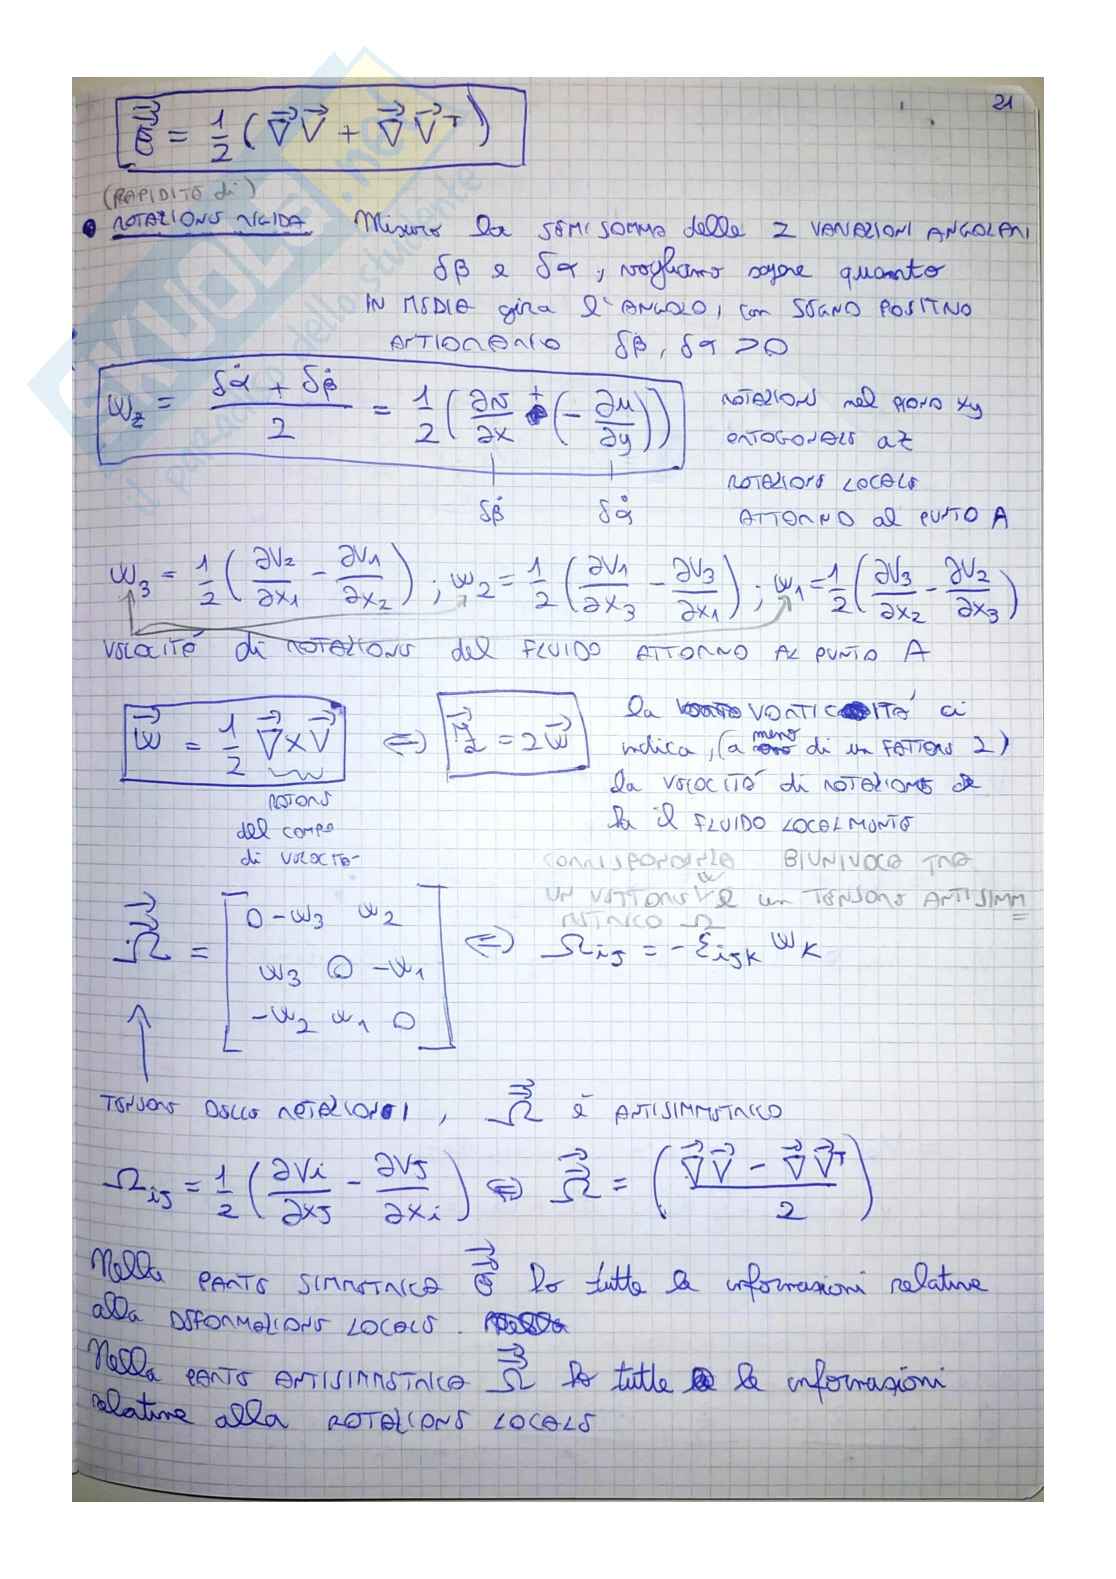 21
E = 1/2 (∇V + ∇V^T)
(RAPIDITÀ di)
• ROTAZIONE RIGIDA Misuro la SEMISOMMA delle 2 VARIAZIONI ANGOLARI
δβ e δα, vogliamo sapere quanto
IN MEDIA gira l'ANGOLO, con SEGNO POSITIVO
ANTIORARIO δβ, δα > 0
ω_z = (δα̇ + δβ̇)/2 = 1/2 (∂v/∂x + (-∂u/∂y))
ROTAZIONE nel PIANO xy
ORTOGONALE a z
ROTAZIONE LOCALE
ATTORNO al PUNTO A
δβ̇ δα̇
ω_3 = 1/2 (∂V_2/∂x_1 - ∂V_1/∂x_2) ; ω_2 = 1/2 (∂V_1/∂x_3 - ∂V_3/∂x_1) ; ω_1 = 1/2 (∂V_3/∂x_2 - ∂V_2/∂x_3)
VELOCITÀ di ROTAZIONE del FLUIDO ATTORNO AL PUNTO A
ω = 1/2 ∇ × V ⇔ = 2ω
ROTORE
del campo
di VELOCITÀ
la VORTICITÀ ci
indica, (a meno di un FATTORE 2)
la VELOCITÀ di ROTAZIONE che
ha il FLUIDO LOCALMENTE
CORRISPONDENZA BIUNIVOCA TRA
UN VETTORE V e un TENSORE ANTISIMM
ETRICO Ω
Ω = [ 0 -ω_3 ω_2
ω_3 0 -ω_1
-ω_2 ω_1 0 ] ⇔ Ω_ij = -ε_ijk ω_k
TENSORE DELLE ROTAZIONI, Ω è ANTISIMMETRICO
Ω_ij = 1/2 (∂V_i/∂x_j - ∂V_j/∂x_i) ⇔ Ω = ((∇V - ∇V^T)/2)
Nella PARTE SIMMETRICA E ho tutte le informazioni relative
alla DEFORMAZIONE LOCALE.
Nella PARTE ANTISIMMETRICA Ω ho tutte le informazioni
relative alla ROTAZIONE LOCALE